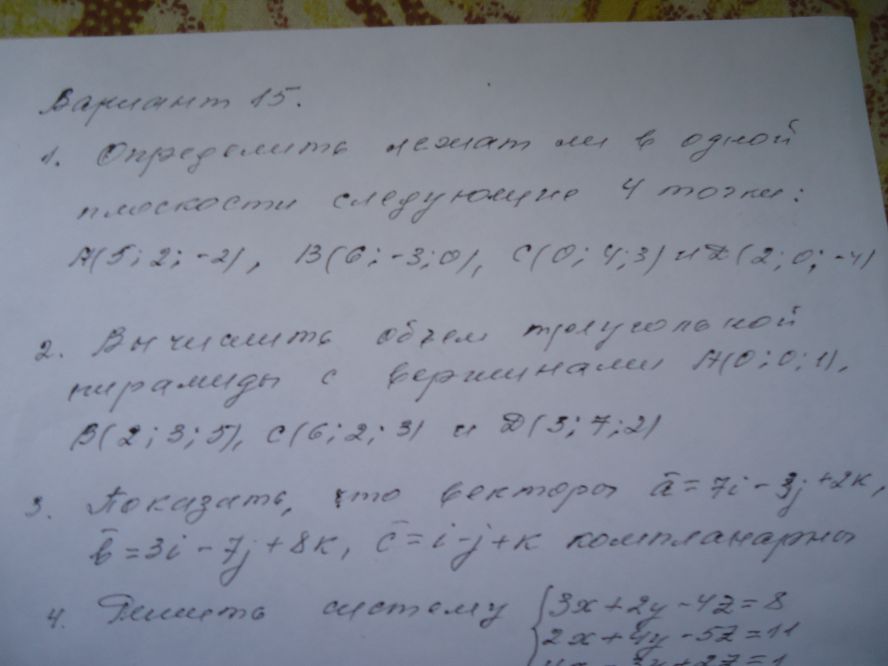 Вариант 15.
1. Определить лежат ли в одной
плоскости следующие 4 точки:
А(5; 2; -2), В(6; -3; 0), С(0; 4; 3) и Д(2; 0; -4)
2. Вычислить объем треугольной
пирамиды с вершинами А(0; 0; 1),
В(2; 3; 5), С(6; 2; 3) и Д(3; 7; 2)
3. Показать, что векторы a̅ = 7i - 3j + 2k,
b̅ = 3i - 7j + 8k, c̅ = i - j + k компланарны
4. Решить систему { 3x + 2y - 4z = 8
2x + 4y - 5z = 11
4x - 3y + 2z = 1